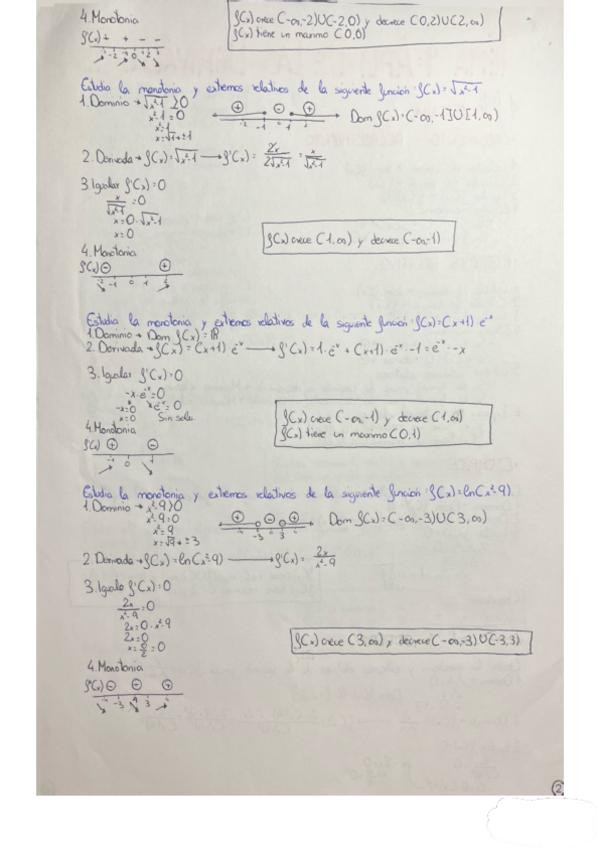 4. Monotonia
f(x) + + - -
-2 0 2
f(x) crece (-∞,-2)U(-2,0) y decrece (0,2)U(2,∞)
f(x) tiene un maximo (0,0)
Estudia la monotonia y extremos relativos de la siguiente función: f(x)=√x²-1
1. Dominio → √x²-1 ≥0
x²-1=0
x²=1
x=√1=±1
+ - +
-2 -1 1 2
Dom f(x)=(-∞,-1]U[1,∞)
2. Derivada → f(x)=√x²-1 → f'(x)= 2x/2√x²-1 = x/√x²-1
3 Igualar f'(x)=0
x/√x²-1 =0
x=0·√x²-1
x=0
f(x) crece (1,∞) y decrece (-∞,-1)
4. Monotonia
f(x) - +
-2 -1 0 1 2
Estudia la monotonia y extremos relativos de la siguiente función: f(x)=(x+1) e⁻ˣ
1. Dominio → Dom f(x)=ℝ
2. Derivada → f(x)=(x+1) e⁻ˣ → f'(x)=1·e⁻ˣ + (x+1)·e⁻ˣ·-1 = e⁻ˣ·-x
3. Igualar f'(x)=0
-x·e⁻ˣ=0
-x=0 e⁻ˣ=0
x=0 Sin solu
f(x) crece (-∞,-1) y decrece (1,∞)
f(x) tiene un maximo (0,1)
4. Monotonia
f(x) + -
-1 0 1
Estudia la monotonia y extremos relativos de la siguiente función f(x)=ln(x²-9)
1. Dominio → x²-9>0
x²-9=0
x²=9
x=√9=±3
+ - +
-3 3
Dom f(x)=(-∞,-3)U(3,∞)
2. Derivada → f(x)=ln(x²-9) → f'(x)= 2x/x²-9
3. Igualo f'(x)=0
2x/x²-9 =0
2x=0·x²-9
2x=0
x=0/2=0
f(x) crece (3,∞) y decrece (-∞,-3)U(-3,3)
4. Monotonia
f(x) - - +
-3 3
2